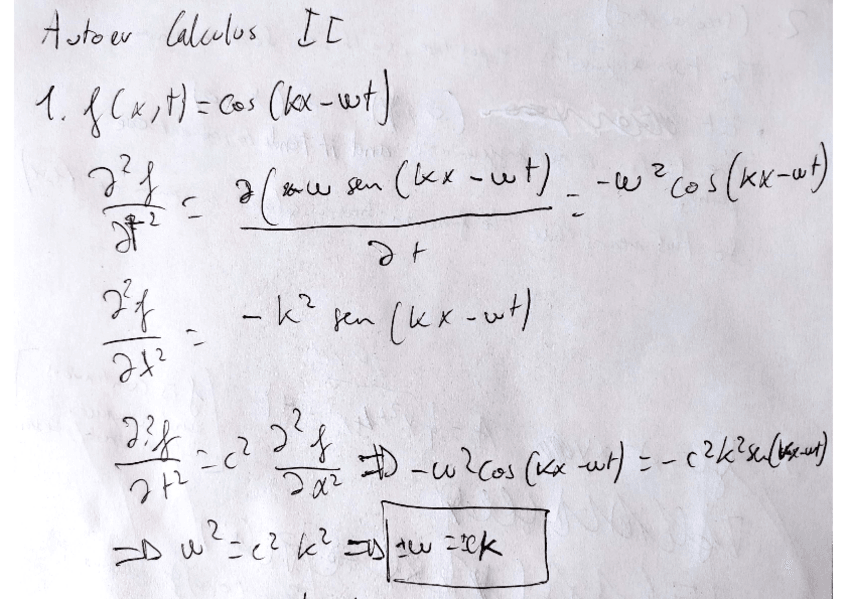 Autoev Calculus II
1. f(x,t) = cos(kx-wt)
∂²f/∂t² = ∂(w sen(kx-wt)/∂t = -w² cos(kx-wt)
∂²f/∂x² = -k² sen(kx-wt)
∂²f/∂t² = c² ∂²f/∂x² => -w² cos(kx-wt) = -c²k² sen(kx-wt)
=> w² = c² k² => ±w = ±ck